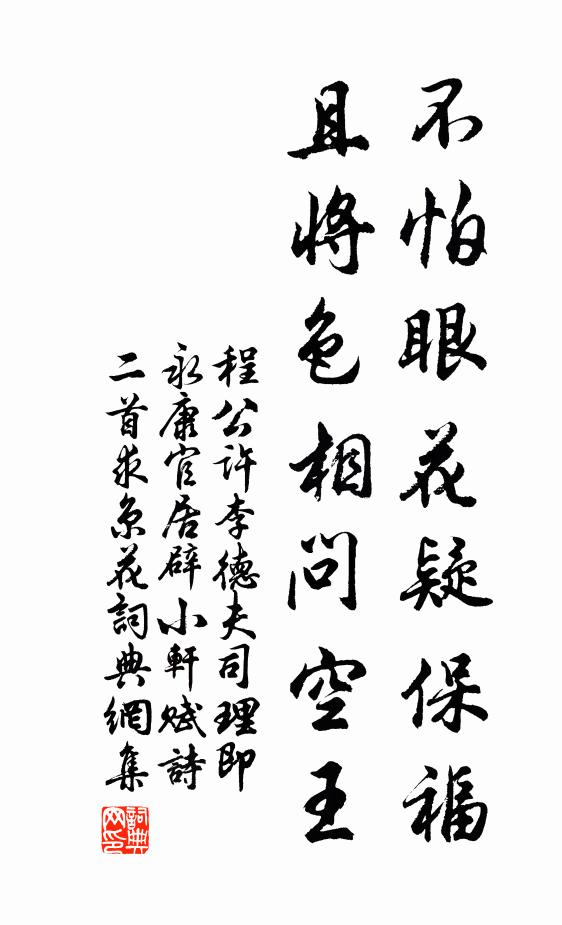 不怕眼花疑保福
且將色相問空王
程公許李德夫司理即
永康官居辟小軒賦詩
二首求京花詞典網集
詞典
网印